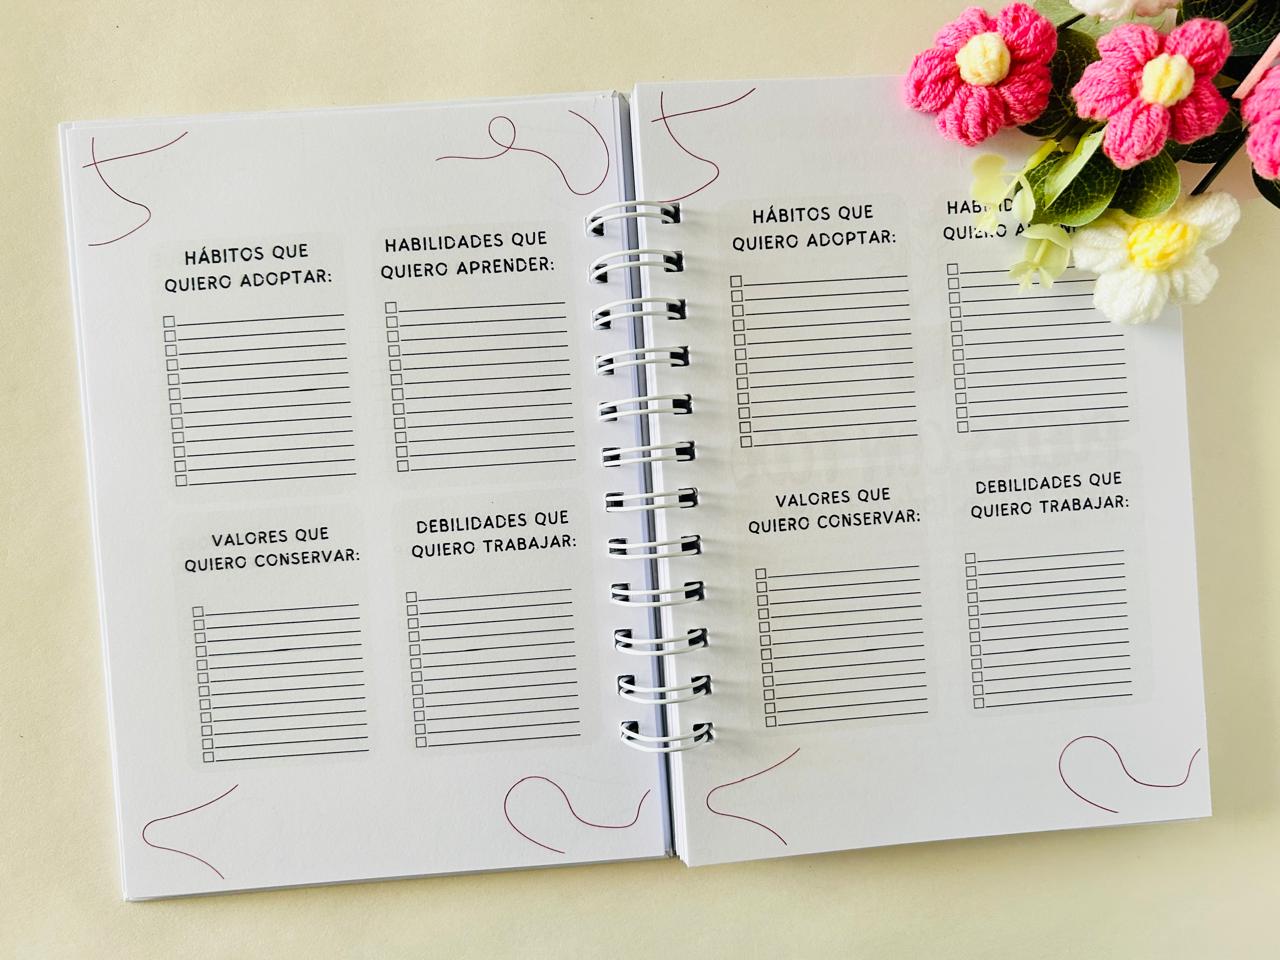 HÁBITOS QUE
QUIERO ADOPTAR:
HABILIDADES QUE
QUIERO APRENDER:
VALORES QUE
QUIERO CONSERVAR:
DEBILIDADES QUE
QUIERO TRABAJAR:
HÁBITOS QUE
QUIERO ADOPTAR:
QUIERO
VALORES QUE
QUIERO CONSERVAR:
DEBILIDADES QUE
QUIERO TRABAJAR: